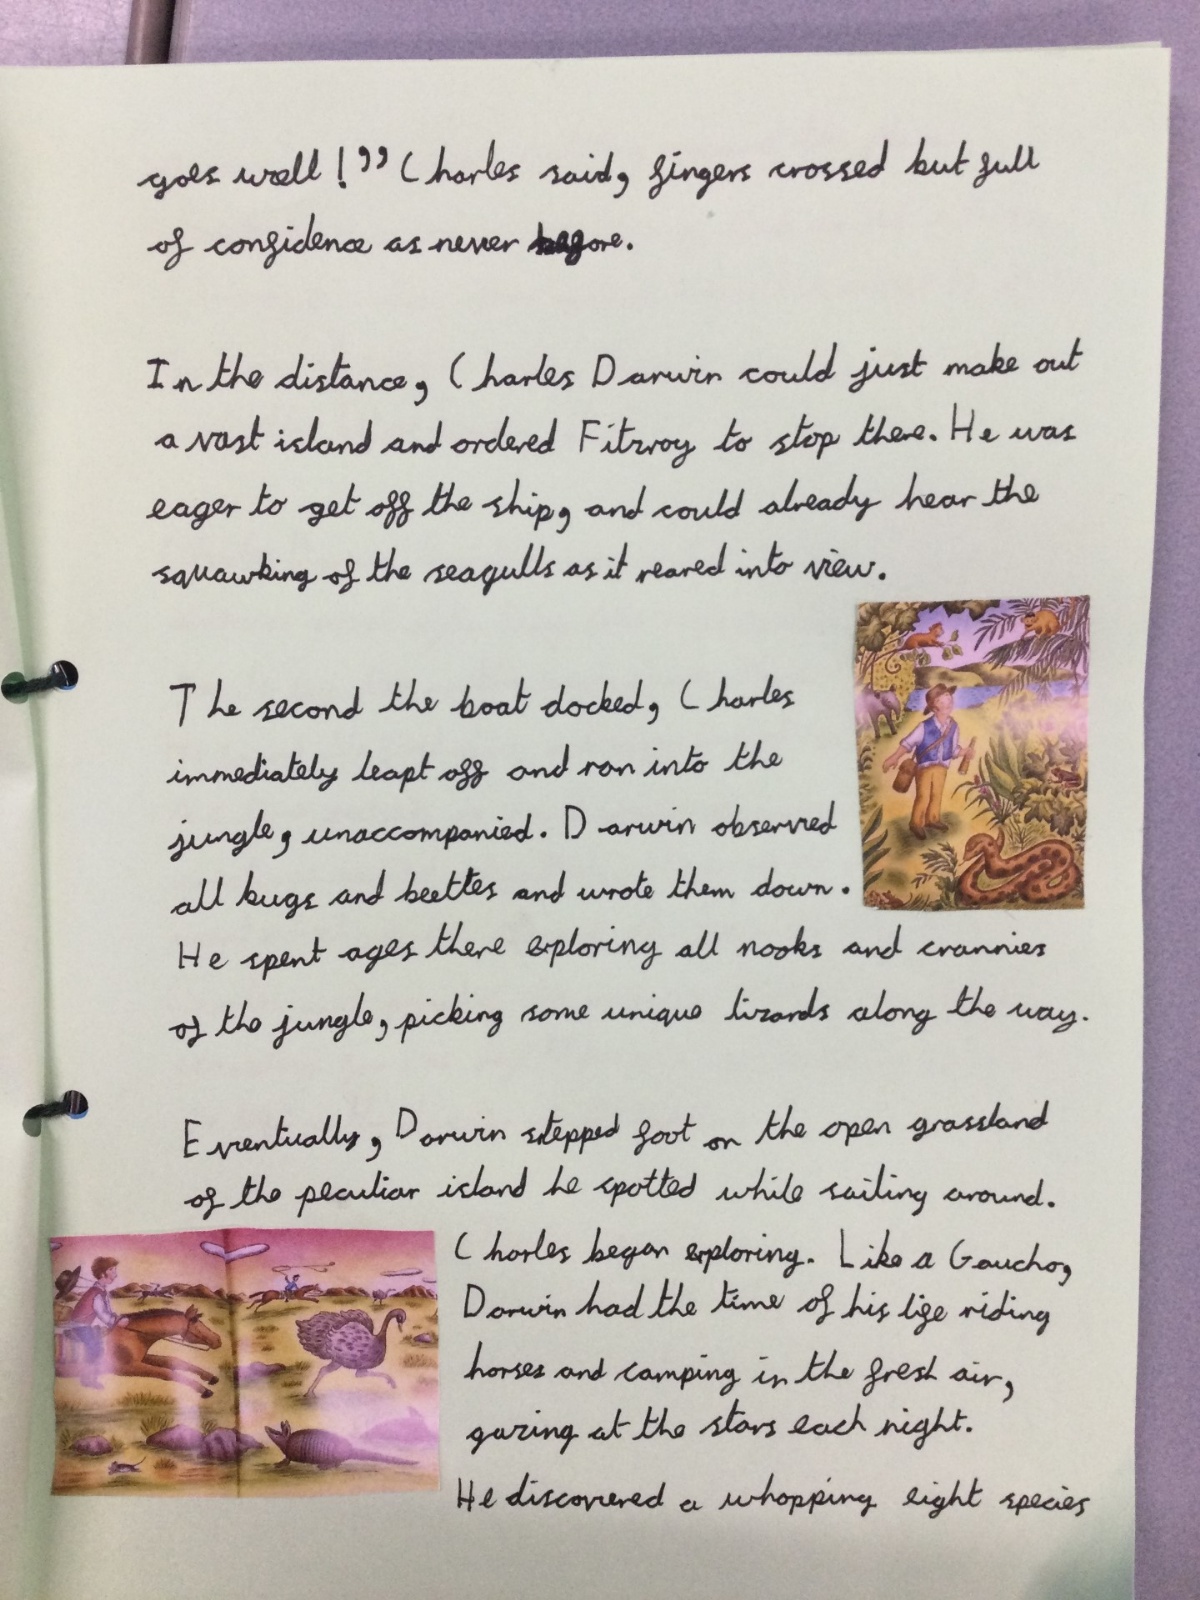 goes well!" Charles said, fingers crossed but full
of confidence as never before.
In the distance, Charles Darwin could just make out
a vast island and ordered Fitzroy to stop there. He was
eager to get off the ship, and could already hear the
squawking of the seagulls as it reared into view.
The second the boat docked, Charles
immediately leapt off and ran into the
jungle, unaccompanied. Darwin observed
all bugs and beetles and wrote them down.
He spent ages there exploring all nooks and crannies
of the jungle, picking some unique lizards along the way.
Eventually, Darwin stepped foot on the open grassland
of the peculiar island he spotted while sailing around.
Charles began exploring. Like a Gaucho,
Darwin had the time of his life riding
horses and camping in the fresh air,
gazing at the stars each night.
He discovered a whopping eight species